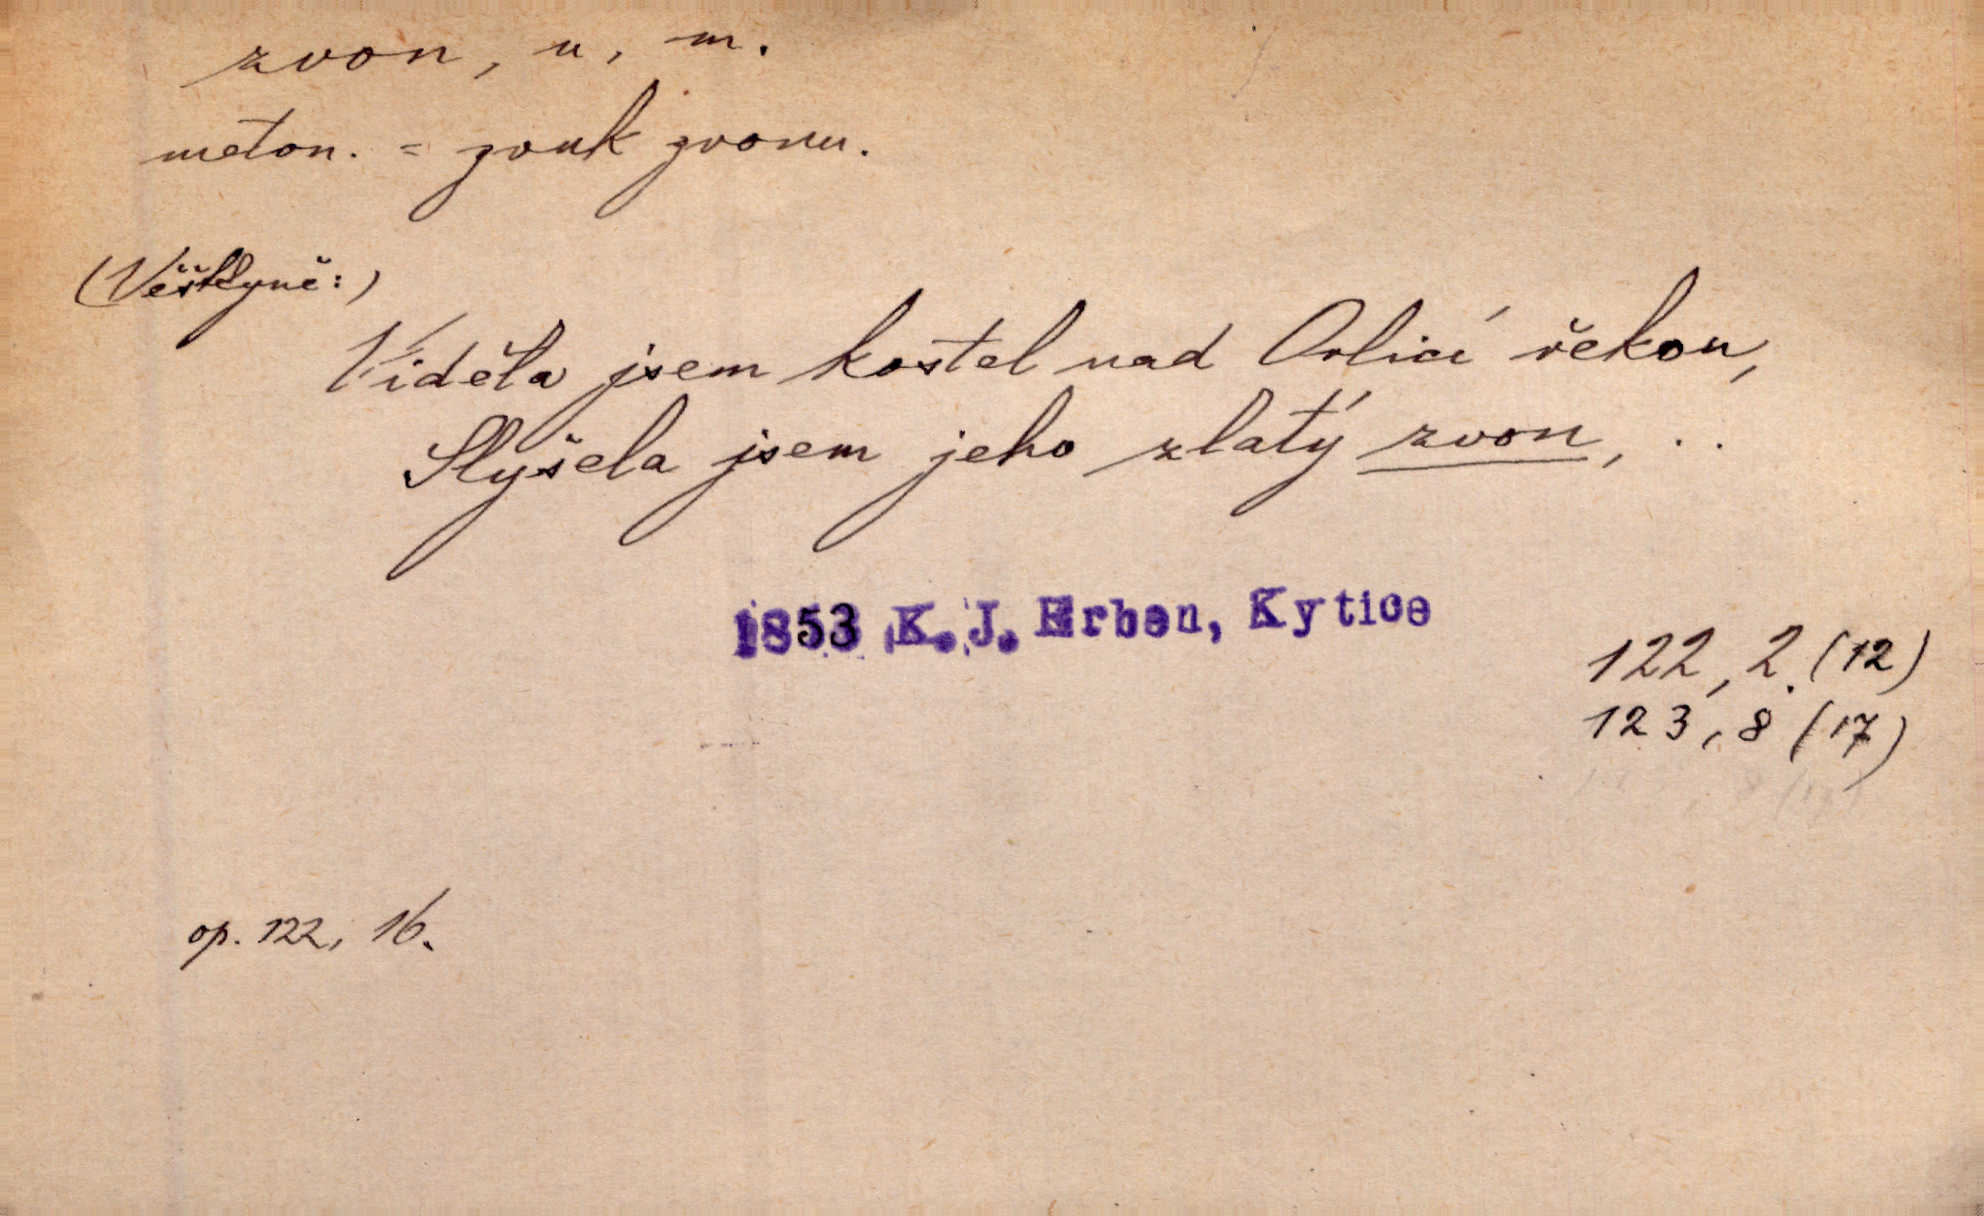 zvon, u, m.
meton. = zvuk zvonu.
(Věštkyně:)
Viděla jsem kostel nad Orlicí řekou,
Slyšela jsem jeho zlatý zvon, ..
1853 K. J. Erben, Kytice
122, 2. (12)
123, 8 (17)
op. 122, 16.